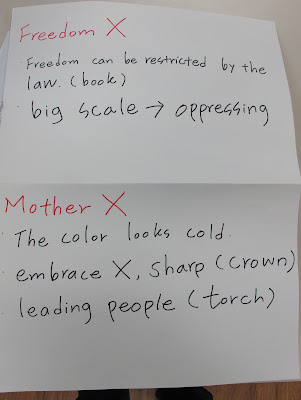 Freedom X
· Freedom can be restricted by the
law. (book)
· big scale → oppressing
Mother X
· The color looks cold.
· embrace X, sharp (crown)
· leading people (torch)